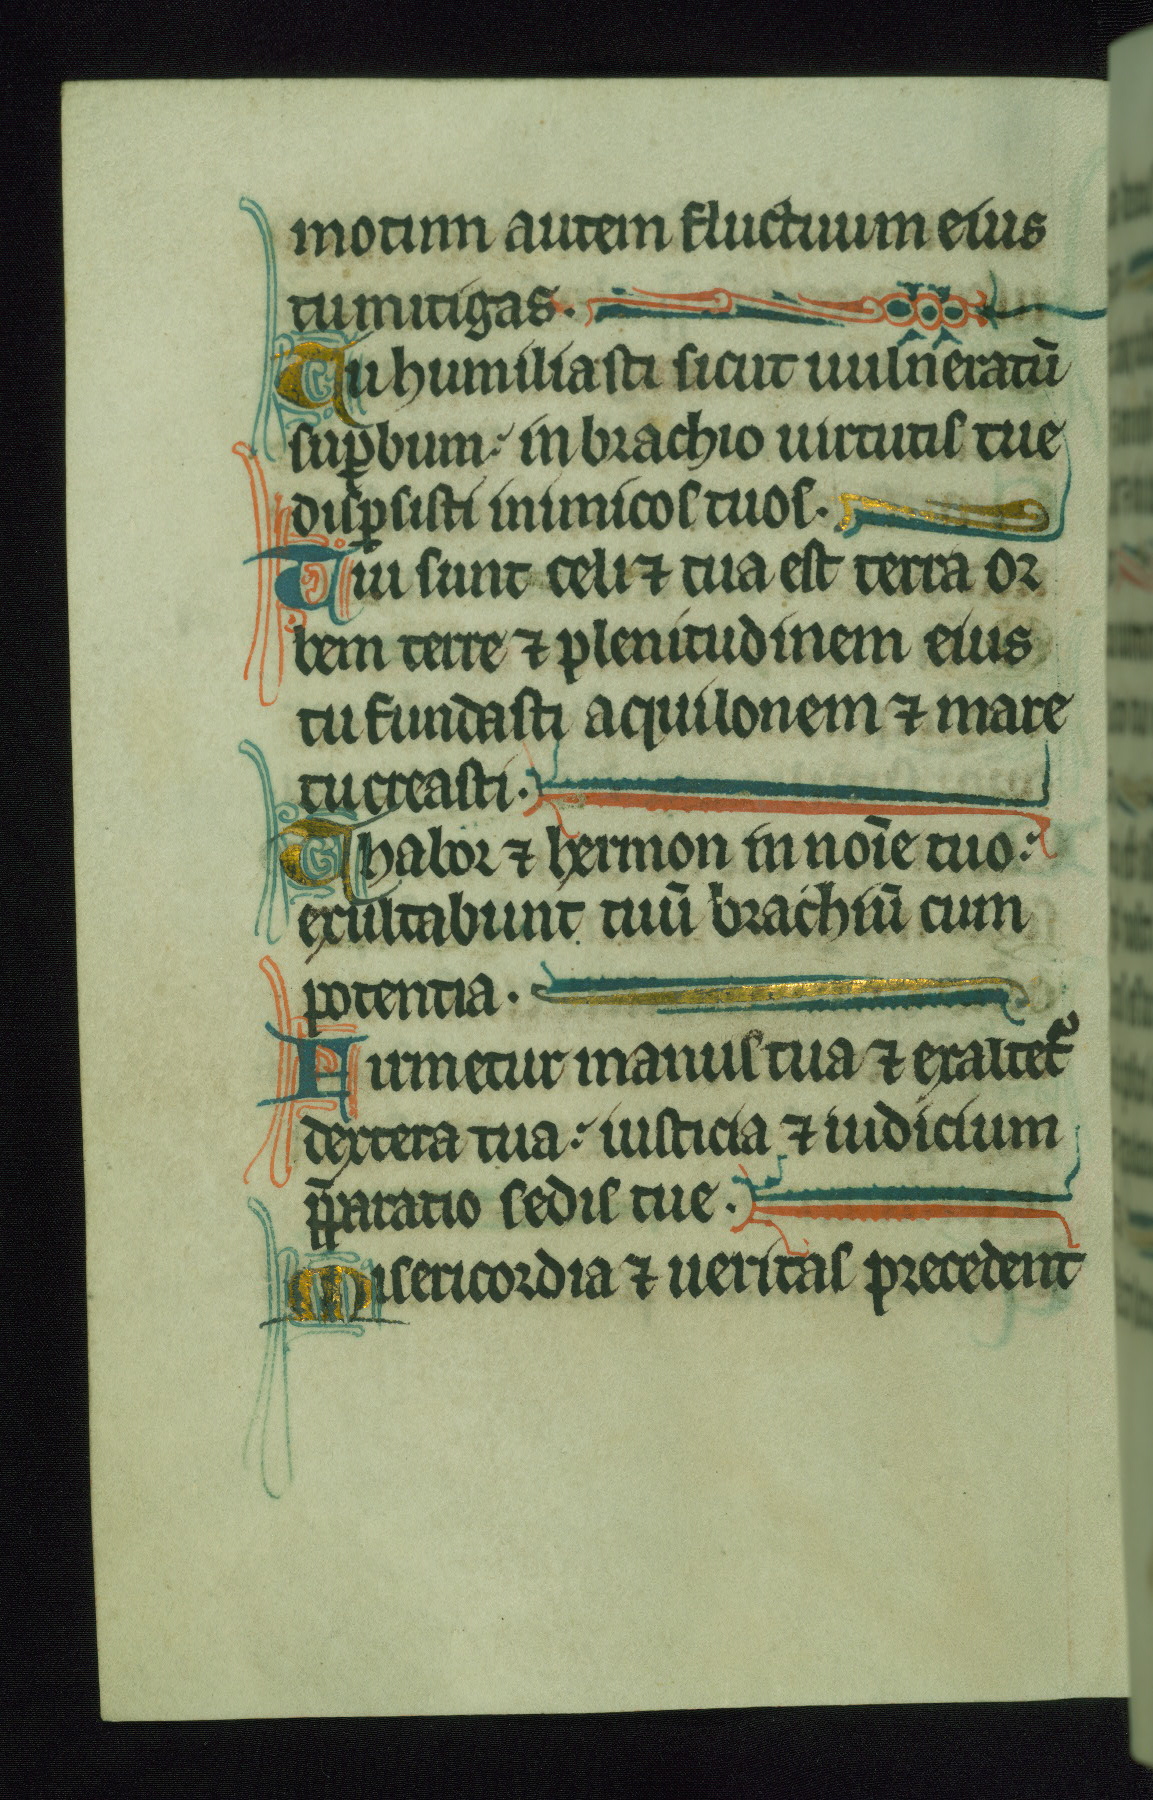 motum autem fluctuum eius
tu mitigas.
Tu humiliasti sicut uulneratū
suꝑbum: in brachio uirtutis tue
disꝑsisti inimicos tuos.
Tui sunt celi ⁊ tua est terra or
bem terre ⁊ plenitudinem eius
tu fundasti aquilonem ⁊ mare
tu creasti.
Thabor ⁊ hermon in noīe tuo:
exultabunt tuū brachiū cum
potentia.
Firmetur manus tua ⁊ exaltet᷑
dextera tua: iusticia ⁊ iudicium
p̄paratio sedis tue.
Misericordia ⁊ ueritas precedent